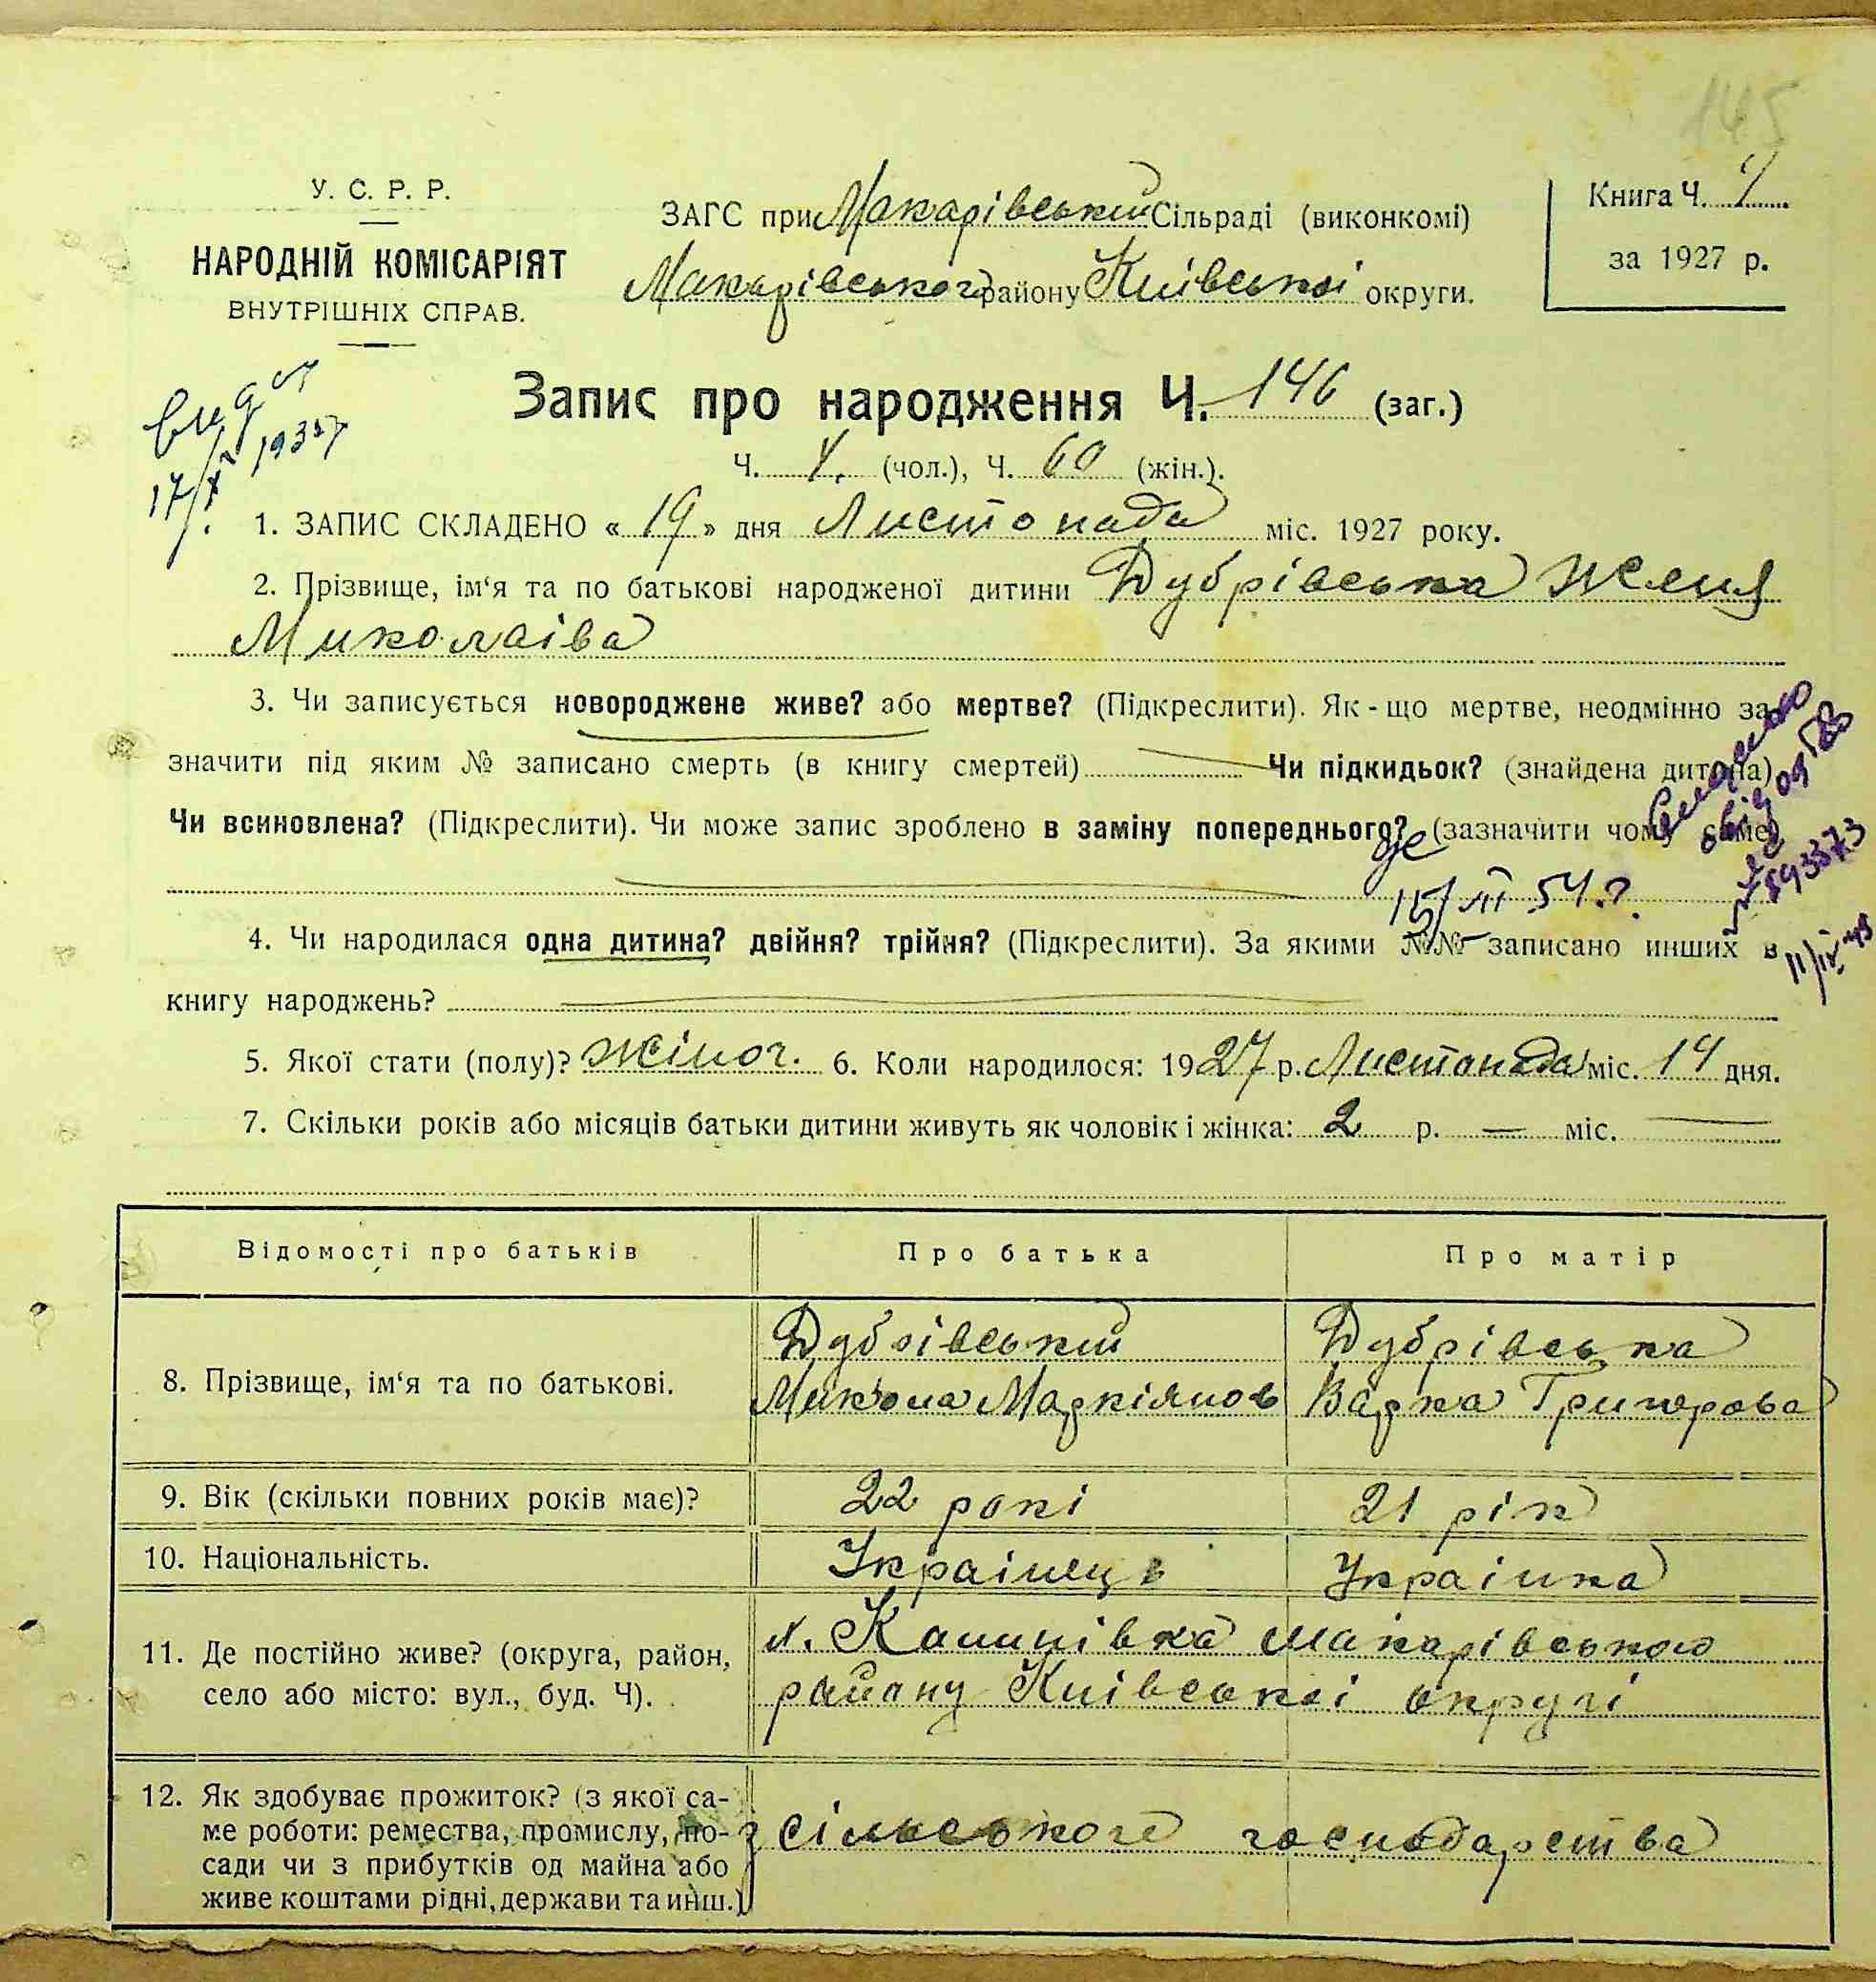 145
У. С. Р. Р.
НАРОДНІЙ КОМІСАРІЯТ
ВНУТРІШНІХ СПРАВ.
ЗАГС при Макарівський Сільраді (виконкомі)
Макарівського району Київської округи.
Книга Ч.
за 1927 р.
17/X 1937
Запис про народження Ч. 146 (заг.)
Ч. (чол.), Ч. 60 (жін.).
1. ЗАПИС СКЛАДЕНО « 19 » дня Листопада міс. 1927 року.
2. Прізвище, ім‘я та по батькові народженої дитини Дубрівська Женя
Миколаіва
3. Чи записується новороджене живе? або мертве? (Підкреслити). Як-що мертве, неодмінно за-
значити під яким № записано смерть (в книгу смертей) Чи підкидьок? (знайдена дитина)
Чи всиновлена? (Підкреслити). Чи може запис зроблено в заміну попереднього? (зазначити чому саме)
893373
4. Чи народилася одна дитина? двійня? трійня? (Підкреслити). За якими №№ записано инших в
книгу народжень?
5. Якої стати (полу)? жіноч. 6. Коли народилося: 1927 р. Листопада міс. 14 дня.
7. Скільки років або місяців батьки дитини живуть як чоловік і жінка: 2 р. — міс.
Відомості про батьків Про батька Про матір
8. Прізвище, ім‘я та по батькові.
Дубрівський Дубрівська
Микола Маркіянов Варка Григорова
9. Вік (скільки повних років має)? 22 рокі 21 рік
10. Національність. Українець Украінка
11. Де постійно живе? (округа, район,
село або місто: вул., буд. Ч).
х. Калинівка Макарівського
району Киівськоі округі
12. Як здобуває прожиток? (з якої са-
ме роботи: ремества, промислу, по-
сади чи з прибутків од майна або
живе коштами рідні, держави та инш.)
з сільського господарства